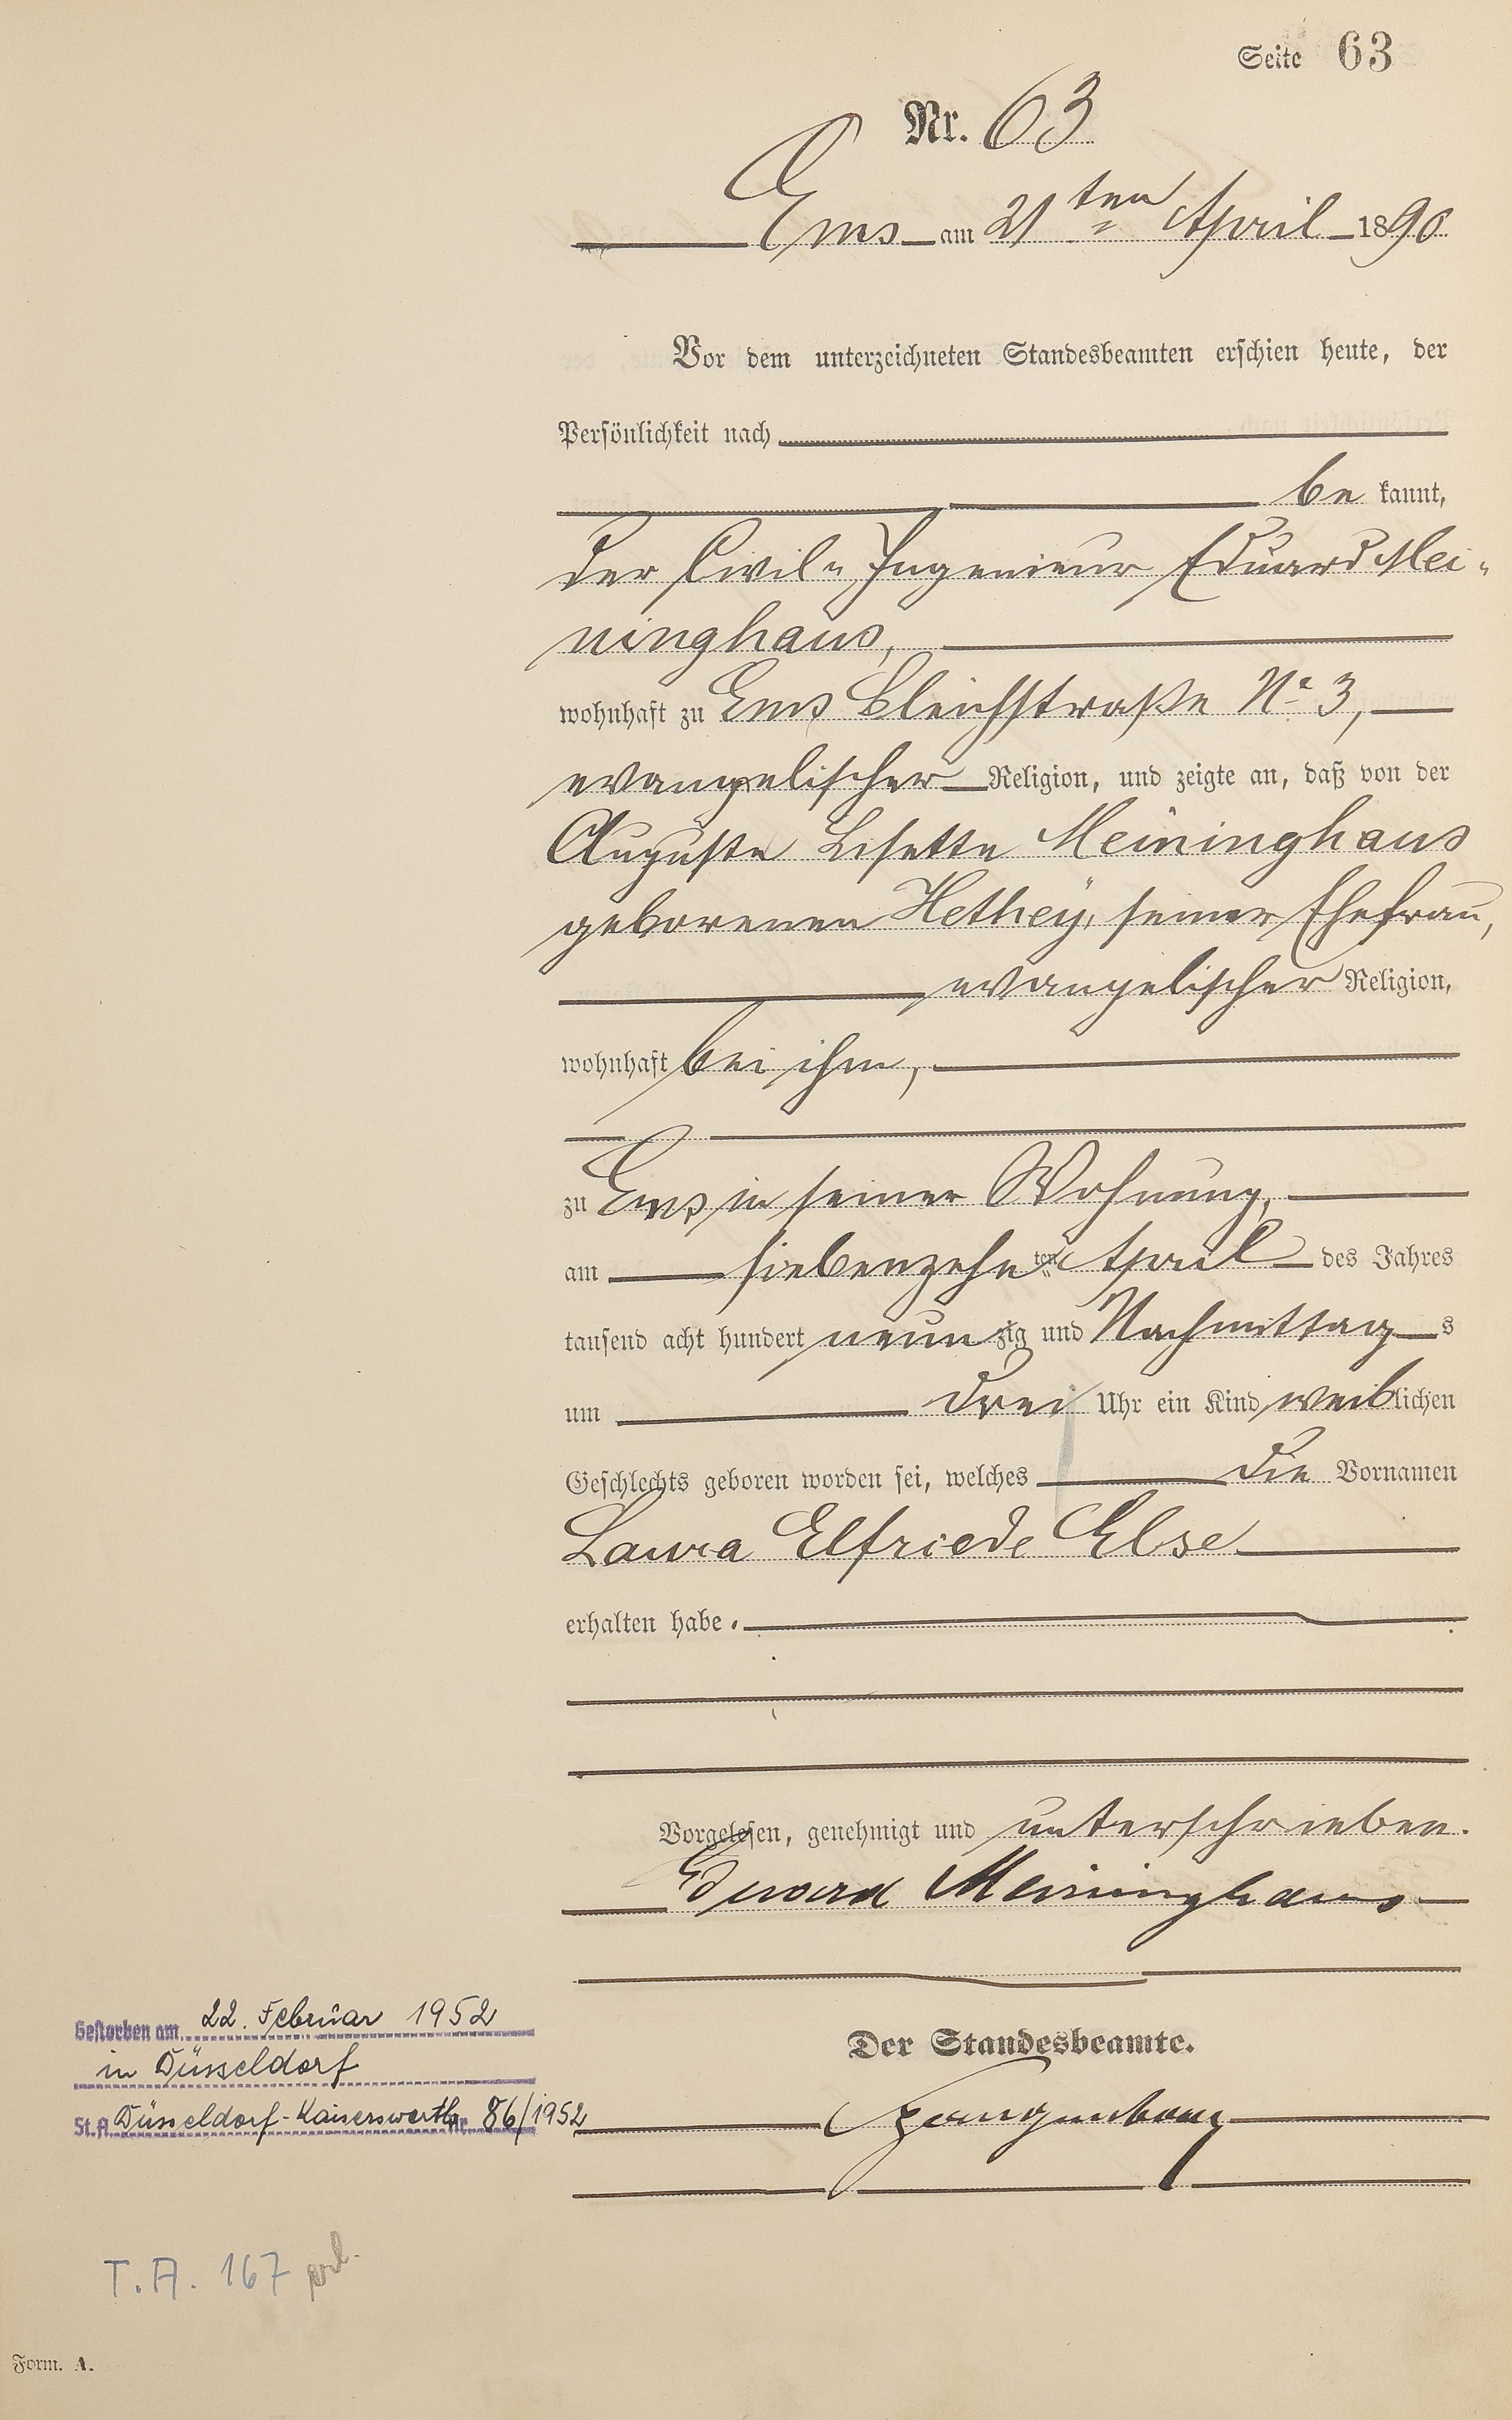 Seite 63
Nr. 63
Ems am 21ten April 1890
Vor dem unterzeichneten Standesbeamten erschien heute, der
Persönlichkeit nach
be kannt,
der Civil-Ingenieur Eduard Mei-
ninghaus,
wohnhaft zu Ems Bleichstraße No 3,
evangelischer Religion, und zeigte an, daß von der
Auguste Lisette Meininghaus
geborenen Hethey, seiner Ehefrau,
evangelischer Religion,
wohnhaft bei ihm,
zu Ems in seiner Wohnung,
am siebenzehnten April des Jahres
tausend acht hundert neunzig und Nachmittags
um drei Uhr ein Kind weiblichen
Geschlechts geboren worden sei, welches die Vornamen
Laura Elfriede Else
erhalten habe.
Vorgelesen, genehmigt und unterschrieben.
Eduard Meininghaus
Der Standesbeamte.
Gestorben am 22. Februar 1952
in Düsseldorf
St. A. Düsseldorf-Kaiserswerth Nr. 86/1952
T. A. 167
Form. A.